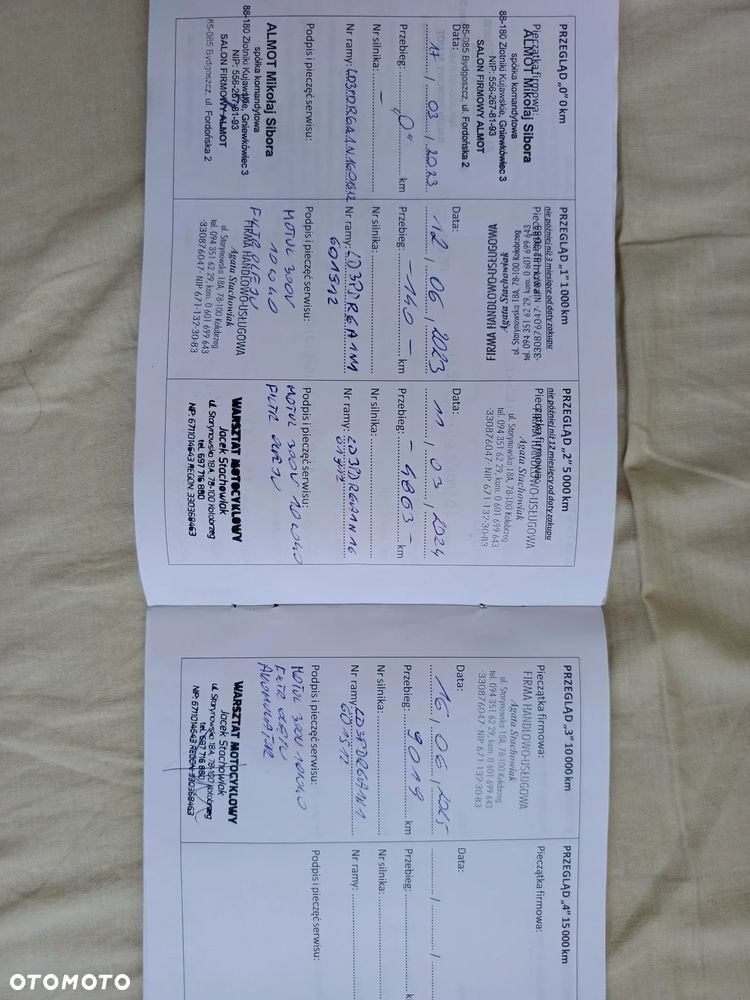 PRZEGLĄD „0" 0 km
Pieczątka firmowa:
ALMOT Mikołaj Sibora
spółka komandytowa
88-180 Złotniki Kujawskie, Gniewkówiec 3
NIP: 556-267-81-93
SALON FIRMOWY ALMOT
85-085 Bydgoszcz, ul. Fordońska 2
Data:
17 / 03 / 2023
Przebieg: „0" km
Nr silnika: –
Nr ramy:
Podpis i pieczęć serwisu:
ALMOT Mikołaj Sibora
spółka komandytowa
88-180 Złotniki Kujawskie, Gniewkówiec 3
NIP: 556-267-81-93
SALON FIRMOWY ALMOT
85-085 Bydgoszcz, ul. Fordońska 2
PRZEGLĄD „1" 1 000 km
nie później niż 3 miesiące od daty zakupu
Pieczątka firmowa:
FIRMA HANDLOWO-USŁUGOWA
Agata Stachowiak
ul. Starynowska 18A, 78-100 Kołobrzeg
tel. 094 351 62 29, kom. 0 601 699 643
-330876047- NIP 671-132-30-83
Data: 12 / 06 / 2023
Przebieg: – 140 – km
Nr silnika:
Nr ramy: LD3PDR6A1N1
601512
Podpis i pieczęć serwisu:
MOTUL 300V
10W40
FILTR OLEJU
FIRMA HANDLOWO-USŁUGOWA
Agata Stachowiak
ul. Starynowska 18A, 78-100 Kołobrzeg
tel. 094 351 62 29, kom. 0 601 699 643
-330876047- NIP 671-132-30-83
PRZEGLĄD „2" 5 000 km
nie później niż 12 miesięcy od daty zakupu
Pieczątka firmowa:
FIRMA HANDLOWO-USŁUGOWA
Agata Stachowiak
ul. Starynowska 18A, 78-100 Kołobrzeg
tel. 094 351 62 29, kom. 0 601 699 643
-330876047- NIP 671-132-30-83
Data:
11 / 03 / 2024
Przebieg: km
Nr silnika:
Nr ramy: LD3PDR6A1N16
Podpis i pieczęć serwisu:
MOTUL 300V 10W40
FILTR OLEJU
WARSZTAT MOTOCYKLOWY
Jacek Stachowiak
ul. Starynowska 18A, 78-100 Kołobrzeg
tel. 697 716 880
NIP: 6711014643 REGON: 330368463
PRZEGLĄD „3" 10 000 km
Pieczątka firmowa:
FIRMA HANDLOWO-USŁUGOWA
Agata Stachowiak
ul. Starynowska 18A, 78-100 Kołobrzeg
tel. 094 351 62 29, kom. 0 601 699 643
-330876047- NIP 671-132-30-83
Data:
16 / 06 / 2025
Przebieg: 9019 km
Nr silnika:
Nr ramy: LD3PDR6A1N1
601512
Podpis i pieczęć serwisu:
MOTUL 300V 10W40
FILTR OLEJU
AKUMULATOR
WARSZTAT MOTOCYKLOWY
Jacek Stachowiak
ul. Starynowska 18A, 78-100 Kołobrzeg
tel. 697 716 880
NIP: 6711014643 REGON: 330368463
PRZEGLĄD „4" 15 000 km
Pieczątka firmowa:
Data:
Przebieg:
Nr silnika:
Nr ramy:
Podpis i pieczęć serwisu:
OTOMOTO